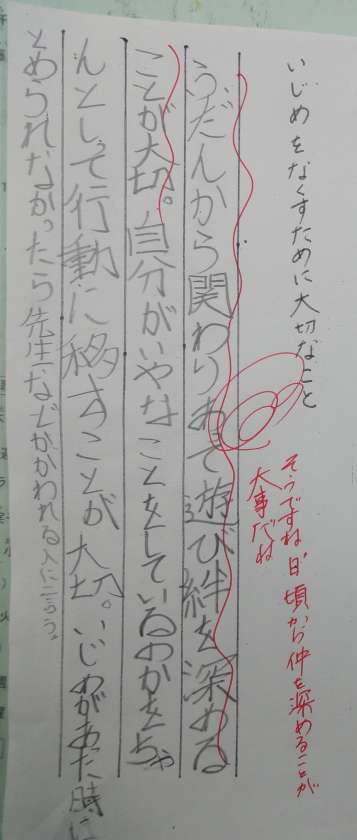 いじめをなくすために大切なこと
そうですね。日頃から仲を深めることが
大事だね
ふだんから関わりあって遊び絆を深める
ことが大切。自分がいやなことをしているのかをちゃ
んとしって行動に移すことが大切。いじめがあった時に
とめられなかったら先生などかかわれる人に言う。